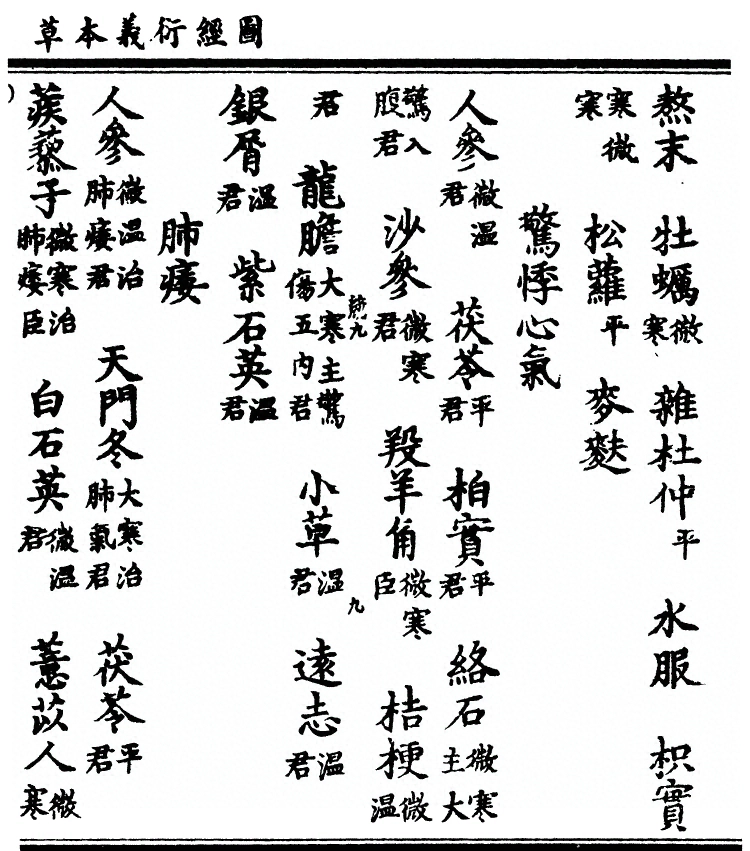 圖經衍義本草
熬末 牡蠣微寒 雜杜仲平 水服 枳實
寒微寒 松蘿平 麥麩
驚悸心氣
人參微溫君 茯苓平君 柏實平君 絡石微寒主大
驚入腹君 沙參微寒君 羖羊角微寒臣 桔梗微溫
九
九
君 龍膽大寒主驚傷五內君 小草溫君 遠志溫君
銀屑溫君 紫石英溫君
肺痿
人參微溫治肺痿君 天門冬大寒治肺氣君 茯苓平君
蒺藜子微寒治肺痿臣 白石英微溫君 薏苡人微寒